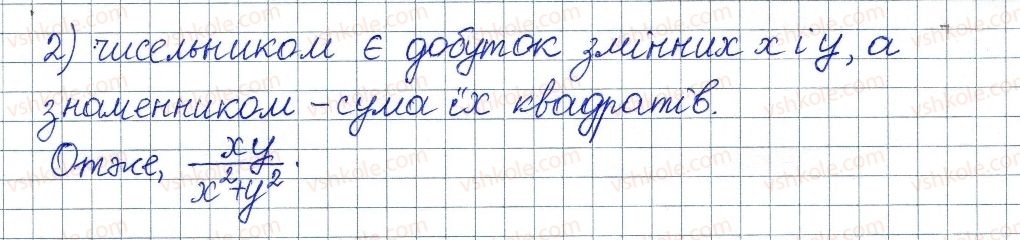 2) чисельником є добуток змінних x і y, а
знаменником – сума їх квадратів.
Отже, xy/x²+y².